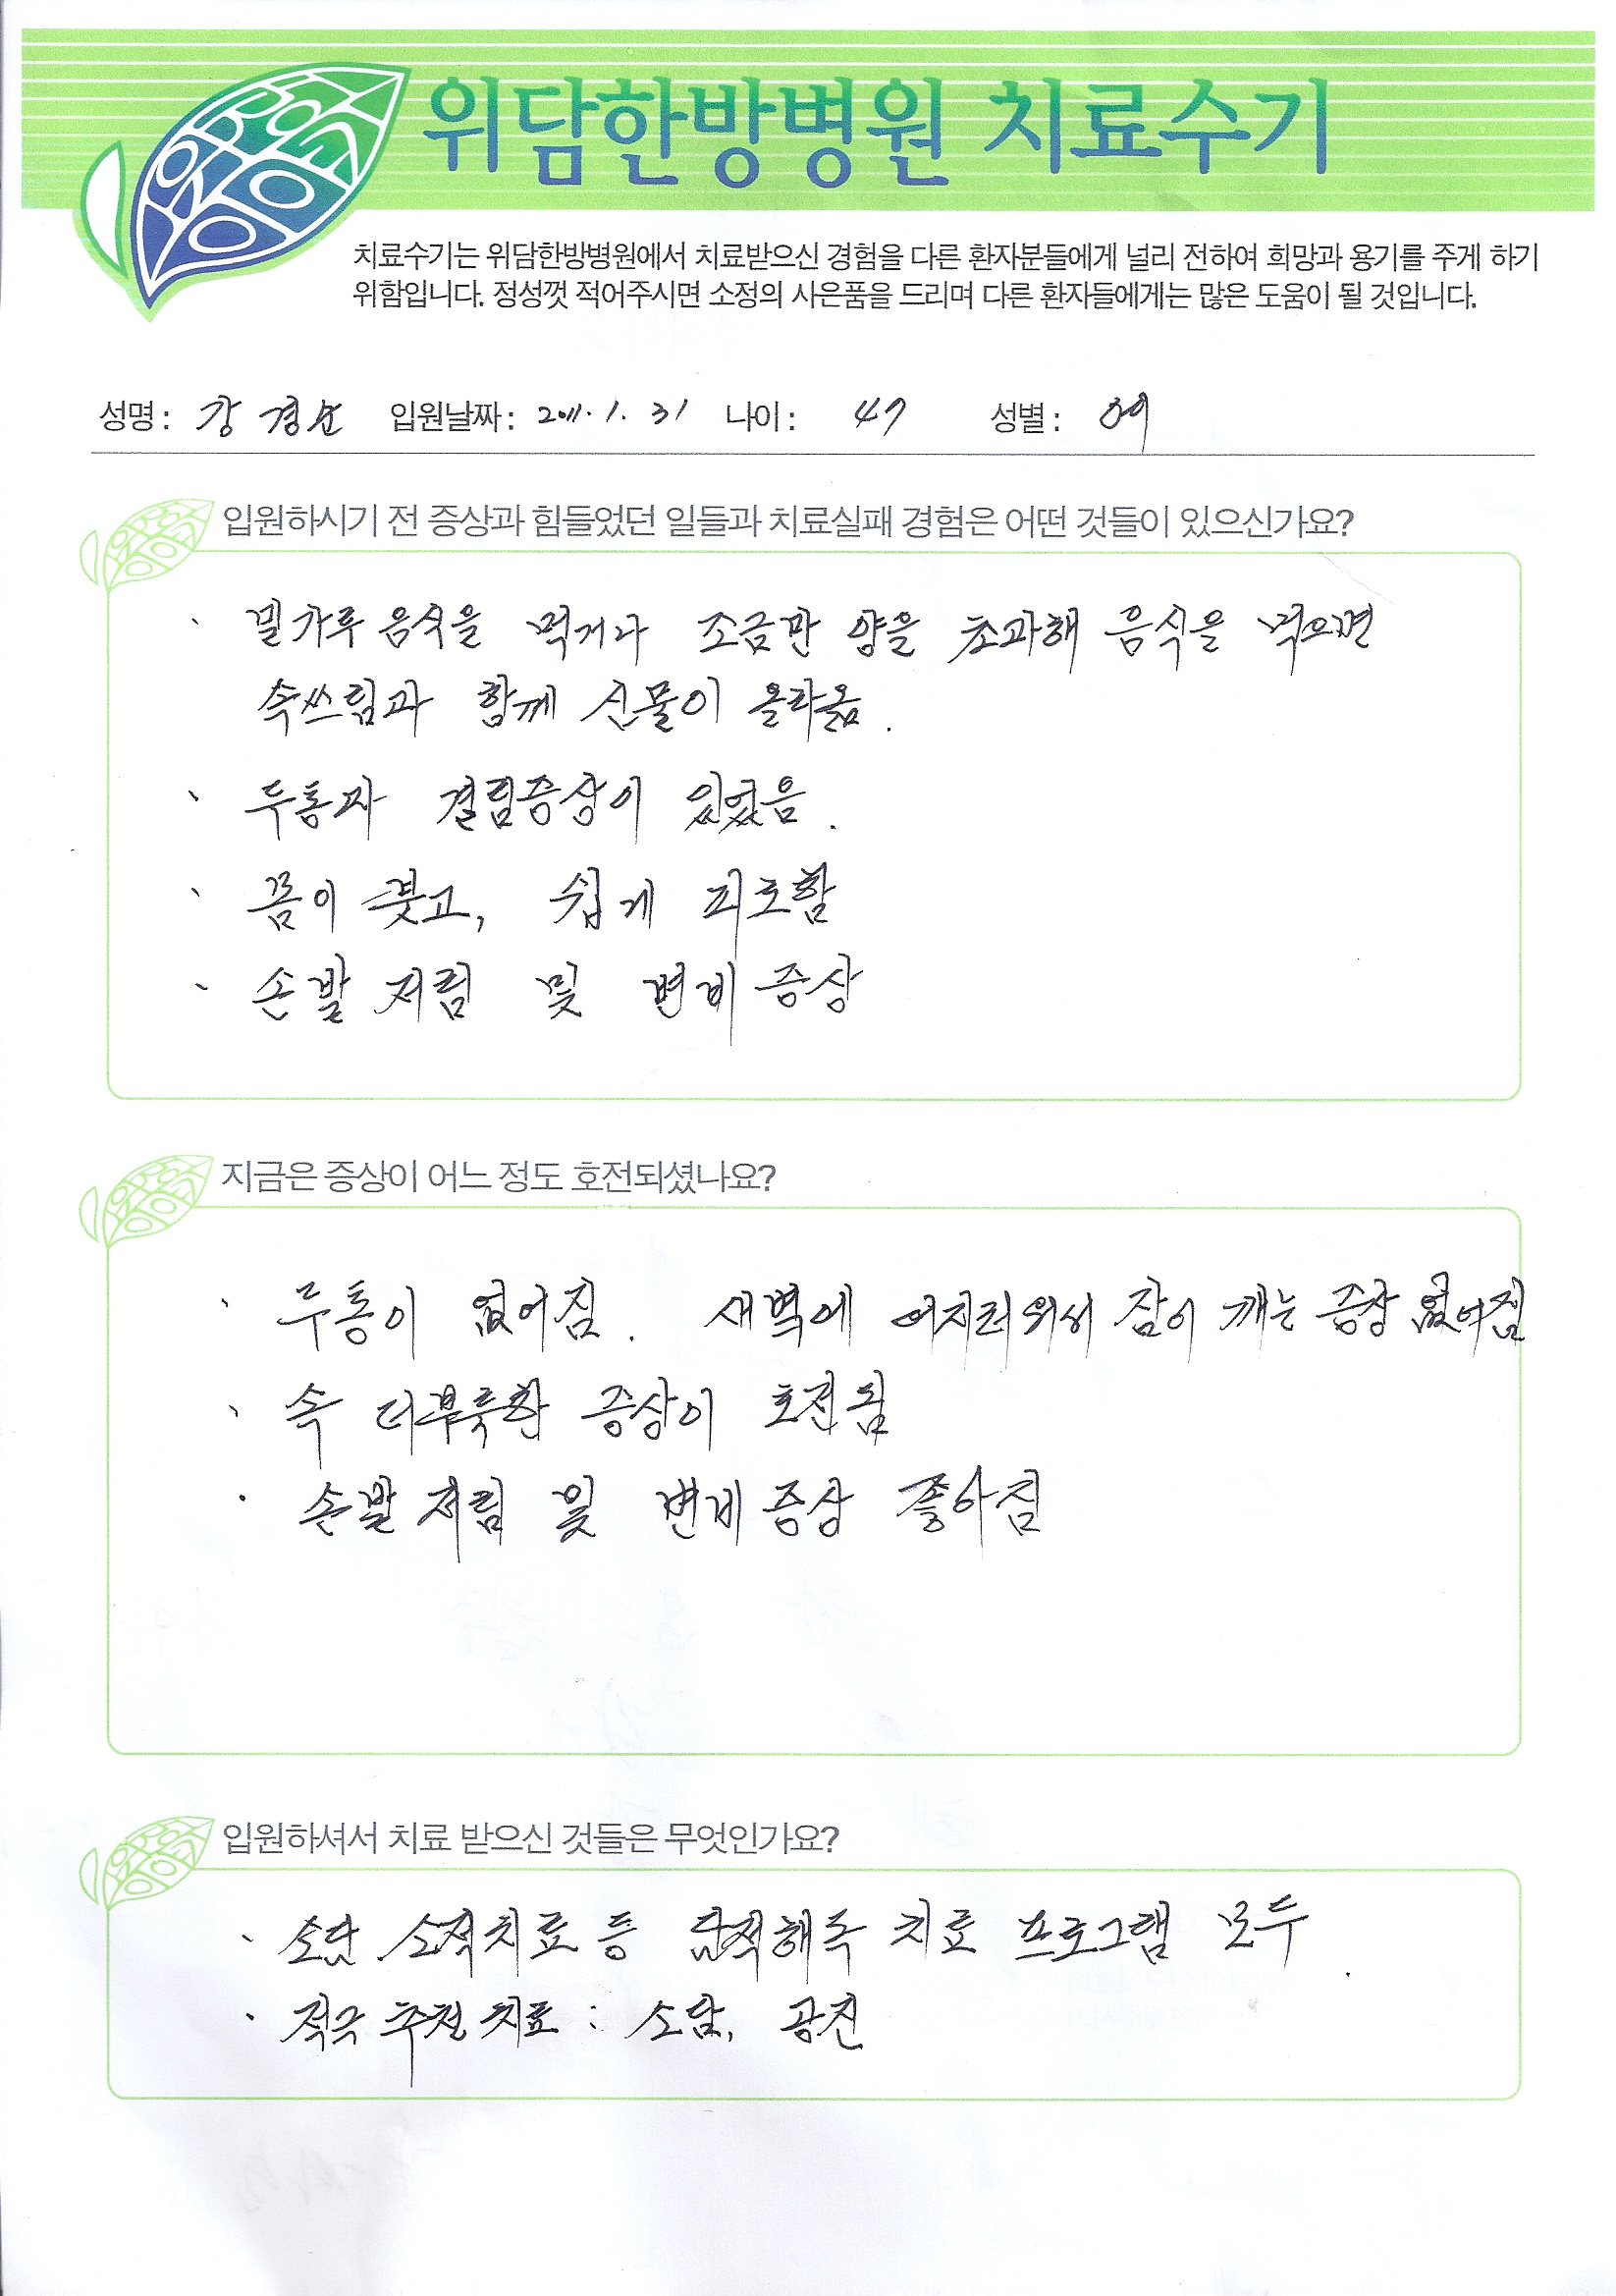 위담한방병원 치료수기
치료수기는 위담한방병원에서 치료받으신 경험을 다른 환자분들에게 널리 전하여 희망과 용기를 주게 하기
위함입니다. 정성껏 적어주시면 소정의 사은품을 드리며 다른 환자들에게는 많은 도움이 될 것입니다.
성명 : 강경순 입원날짜 : 2011. 1. 31 나이 : 47 성별 : 여
입원하시기 전 증상과 힘들었던 일들과 치료실패 경험은 어떤 것들이 있으신가요?
· 밀가루 음식을 먹거나 조금만 양을 초과해 음식을 먹으면
속쓰림과 함께 신물이 올라옴.
· 두통과 결림증상이 있었음.
· 몸이 붓고, 쉽게 피로함
· 손발 저림 및 변비 증상
지금은 증상이 어느 정도 호전되셨나요?
· 두통이 없어짐. 새벽에 어지러워서 잠이 깨는 증상 없어짐
· 속 더부룩한 증상이 호전됨
· 손발 저림 및 변비 증상 좋아짐
입원하셔서 치료 받으신 것들은 무엇인가요?
· 소담, 소적치료 등 담적해독 치료 프로그램 모두.
· 적극 추천 치료 : 소담, 공진